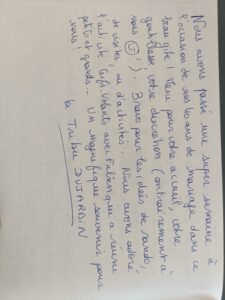 Nous avons passé une super semaine à
l'occasion de nos 60 ans de mariage dans ce
beau gite ! Merci pour votre accueil, votre
gentillesse, votre discrétion (contrairement à
nous !) . Bravo pour les idées de rando,
de visites, ou d'activités... Nous avons adoré
l'activité Cerfs-Volants avec Fabien qui a réuni
petits et grands... Un magnifique souvenir pour
nous !
la Tribu DUJARDIN